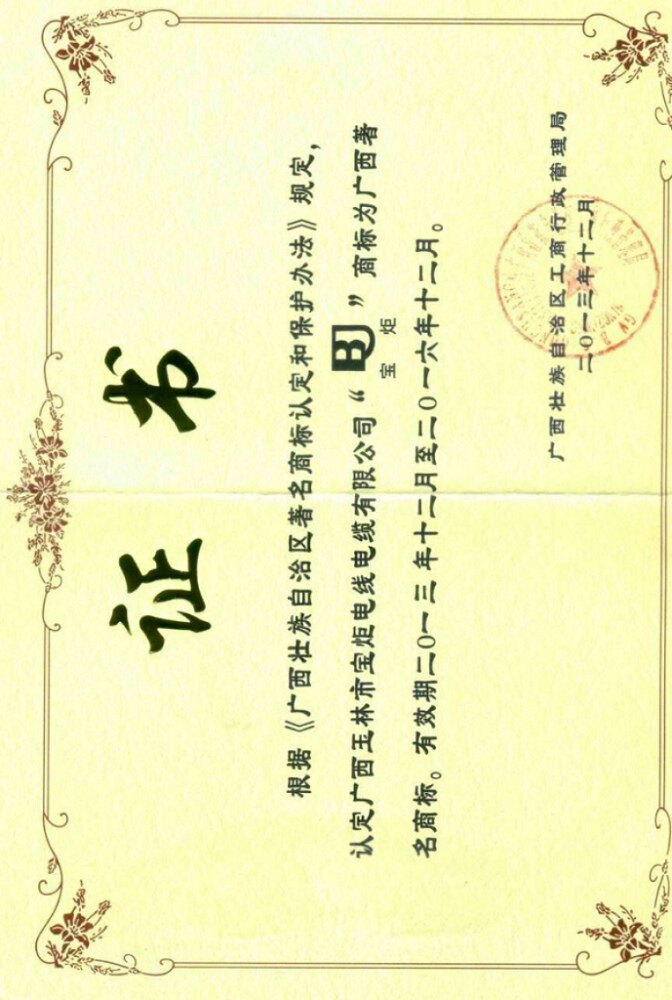 证书
根据《广西壮族自治区著名商标认定和保护办法》规定，
认定广西玉林市宝炬电线电缆有限公司“BJ”商标为广西著
宝炬
名商标。有效期二0一三年十二月至二0一六年十二月。
广西壮族自治区工商行政管理局
二0一三年十二月